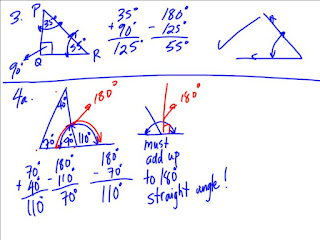 3.
P
35°
90°
Q
55°
R
35°
+ 90°
125°
180°
- 125°
55°
4a.
40°
70°
110°
180°
70°
+ 40°
110°
180°
- 110°
70°
180°
- 70°
110°
180°
must
add up
to 180°
straight angle!